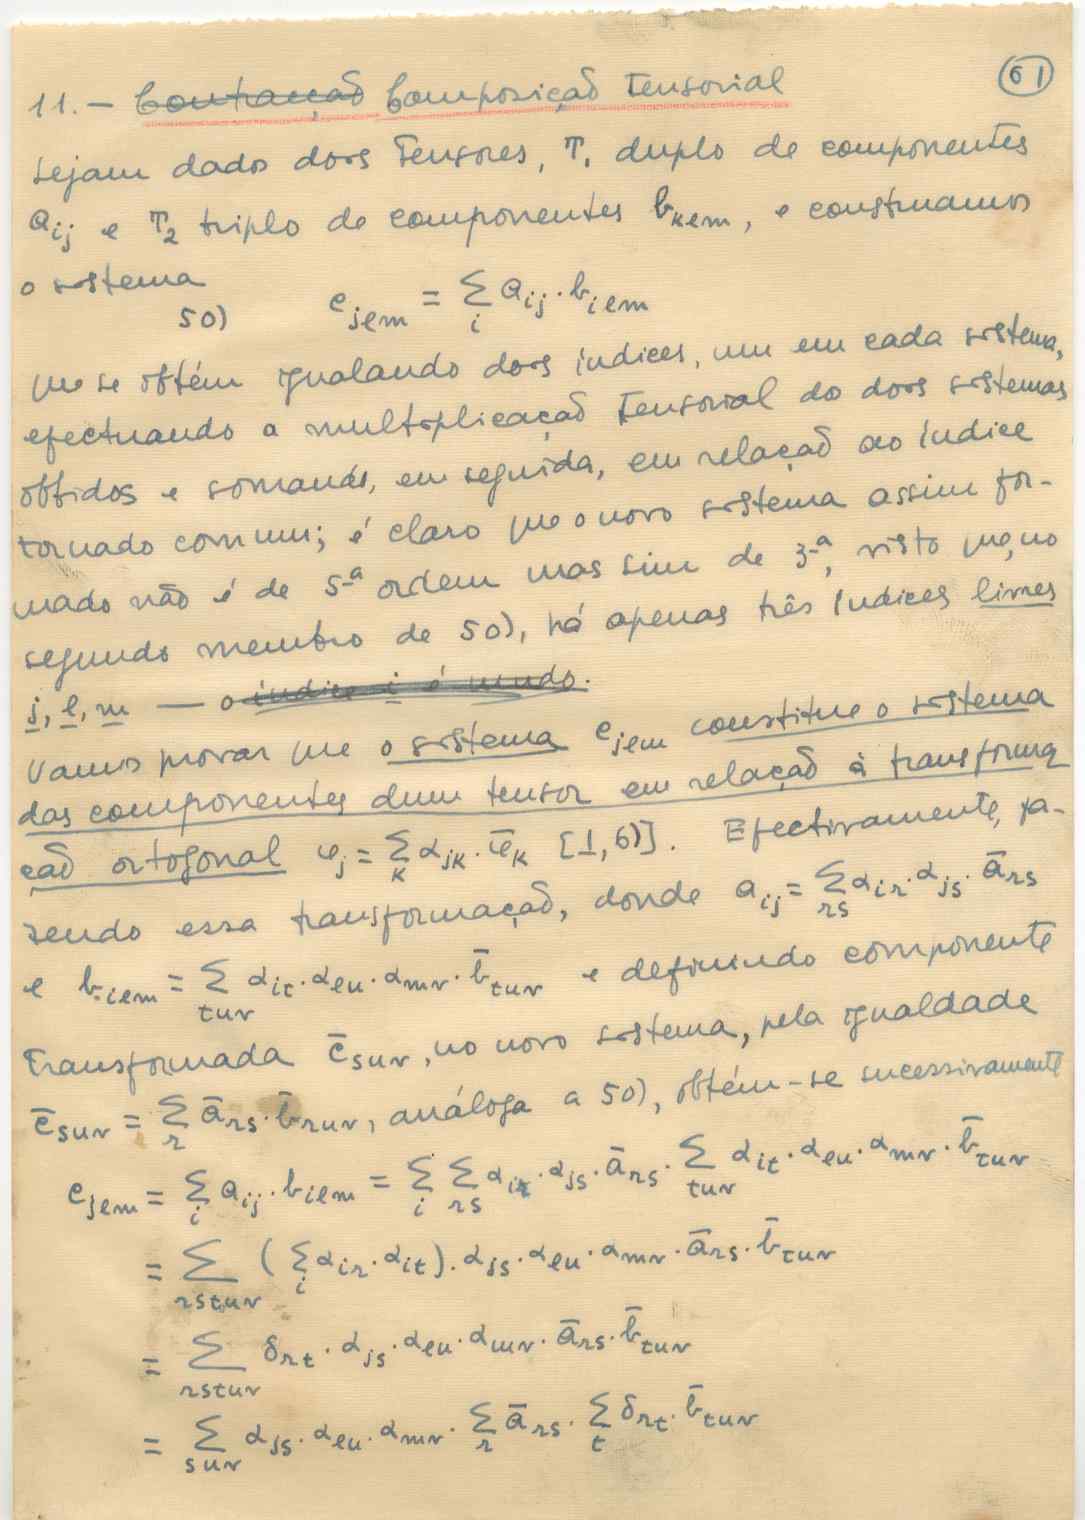 61
11. — Contracção Composição Tensorial
Sejam dados dois Tensores, T₁ duplo de componentes
aᵢⱼ e T₂ triplo de componentes bₖₗₘ, e construamos
o sistema
50) cⱼₗₘ = Σᵢ aᵢⱼ · bᵢₗₘ
que se obtém igualando dois índices, um em cada sistema,
efectuando a multiplicação Tensorial do dois sistemas
obtidos e somando, em seguida, em relação ao índice
tornado comum; é claro que o novo sistema assim for-
mado não é de 5-ª ordem mas sim de 3-ª, visto que, no
segundo membro de 50), há apenas três índices livres
j, l, m — o índice i é mudo.
Vamos provar que o sistema cⱼₗₘ constitue o sistema
das componentes dum tensor em relação à transforma
ção ortogonal φⱼ = Σₖ αⱼₖ · φ̄ₖ [1, 6)]. Efectivamente, fa-
zendo essa transformação, donde aᵢⱼ = Σᵣₛ αᵢᵣ · αⱼₛ · āᵣₛ
e bᵢₗₘ = Σₜᵤᵥ αᵢₜ · αₗᵤ · αₘᵥ · b̄ₜᵤᵥ e definindo componente
Transformada c̄ₛᵤᵥ, no novo sistema, pela igualdade
c̄ₛᵤᵥ = Σᵣ āᵣₛ · b̄ᵣᵤᵥ, análoga a 50), obtém-se sucessivamente
cⱼₗₘ = Σᵢ aᵢⱼ · bᵢₗₘ = Σᵢ Σᵣₛ αᵢᵣ · αⱼₛ · āᵣₛ · Σₜᵤᵥ αᵢₜ · αₗᵤ · αₘᵥ · b̄ₜᵤᵥ
= Σᵣₛₜᵤᵥ (Σᵢ αᵢᵣ · αᵢₜ) · αⱼₛ · αₗᵤ · αₘᵥ · āᵣₛ · b̄ₜᵤᵥ
= Σᵣₛₜᵤᵥ δᵣₜ · αⱼₛ · αₗᵤ · αₘᵥ · āᵣₛ · b̄ₜᵤᵥ
= Σₛᵤᵥ αⱼₛ · αₗᵤ · αₘᵥ · Σᵣ āᵣₛ · Σₜ δᵣₜ · b̄ₜᵤᵥ